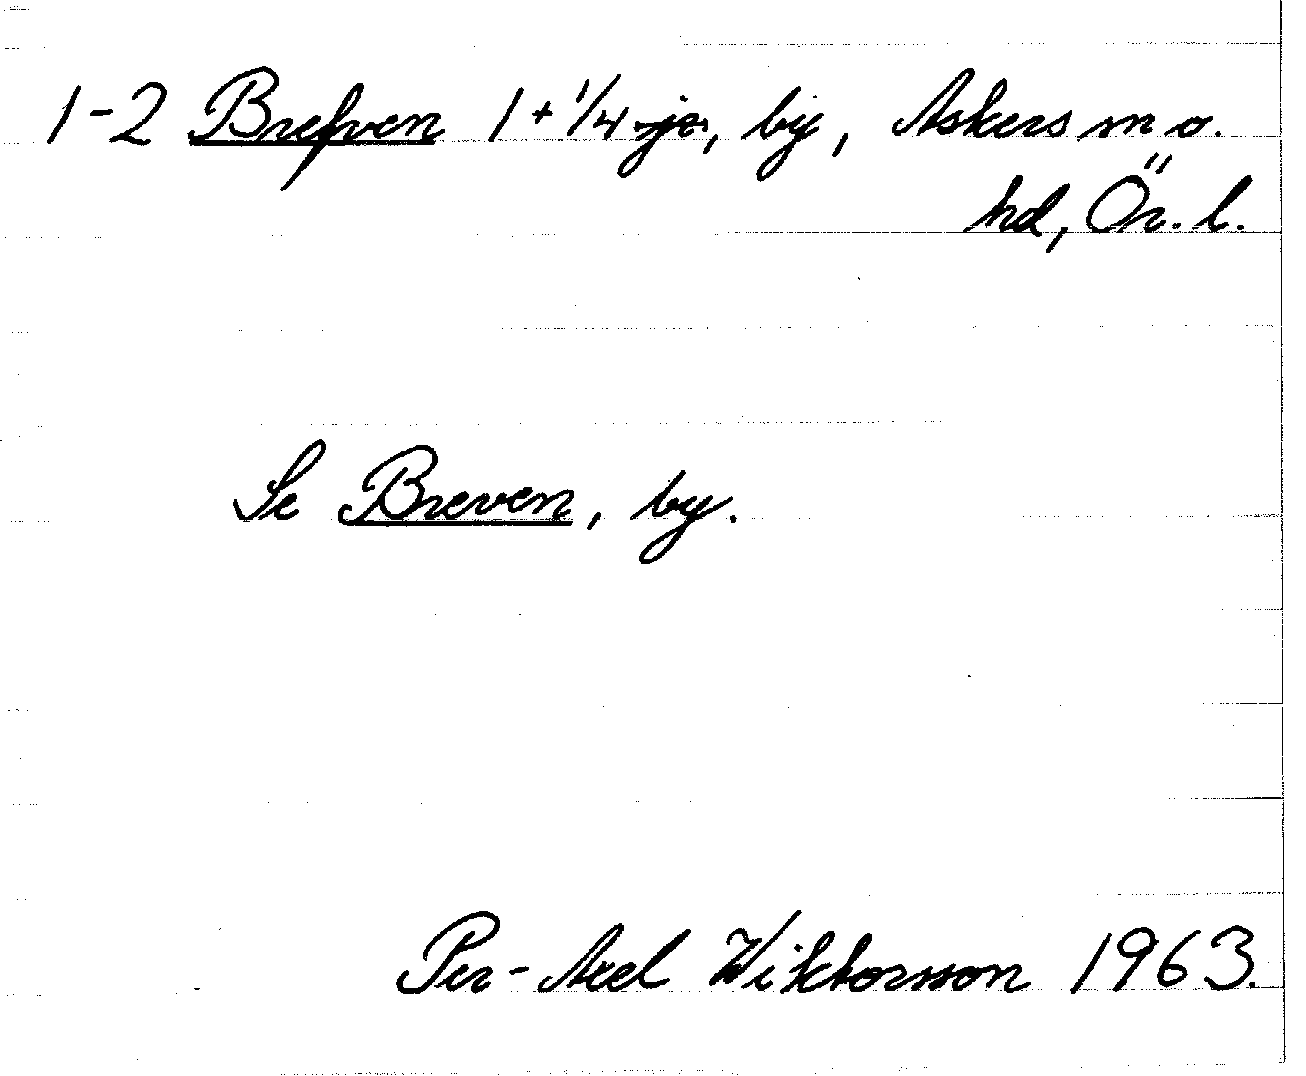 1-2 Brefven 1+1/4 ja, by, Askers sn o.
hd, Ör. l.
Se Breven, by.
Per-Axel Wiktorsson 1963.